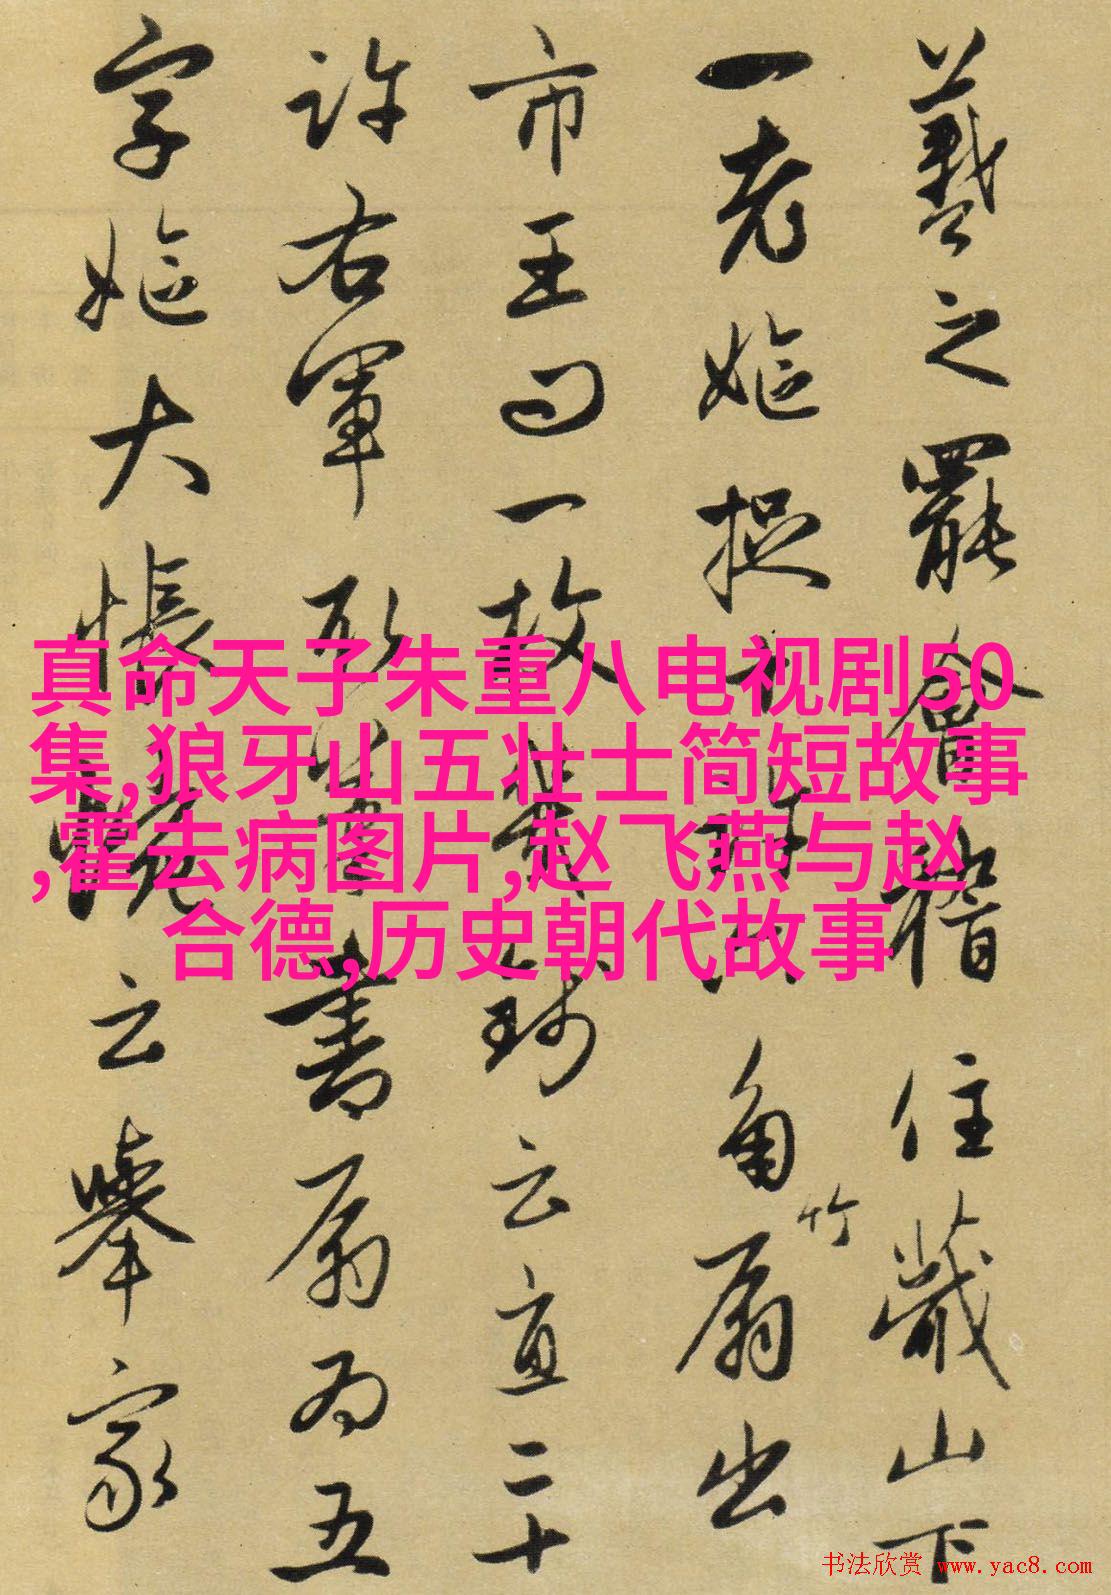 羲之罷會稽住蕺山下
一老嫗捉
角竹扇出
市王問一故
云直二十
許右軍
書扇為五
字嫗大悵惋云舉家
真命天子朱重八电视剧50
集,狼牙山五壮士简短故事
,霍去病图片,赵飞燕与赵
合德,历史朝代故事
书法欣赏 www.yac8.com